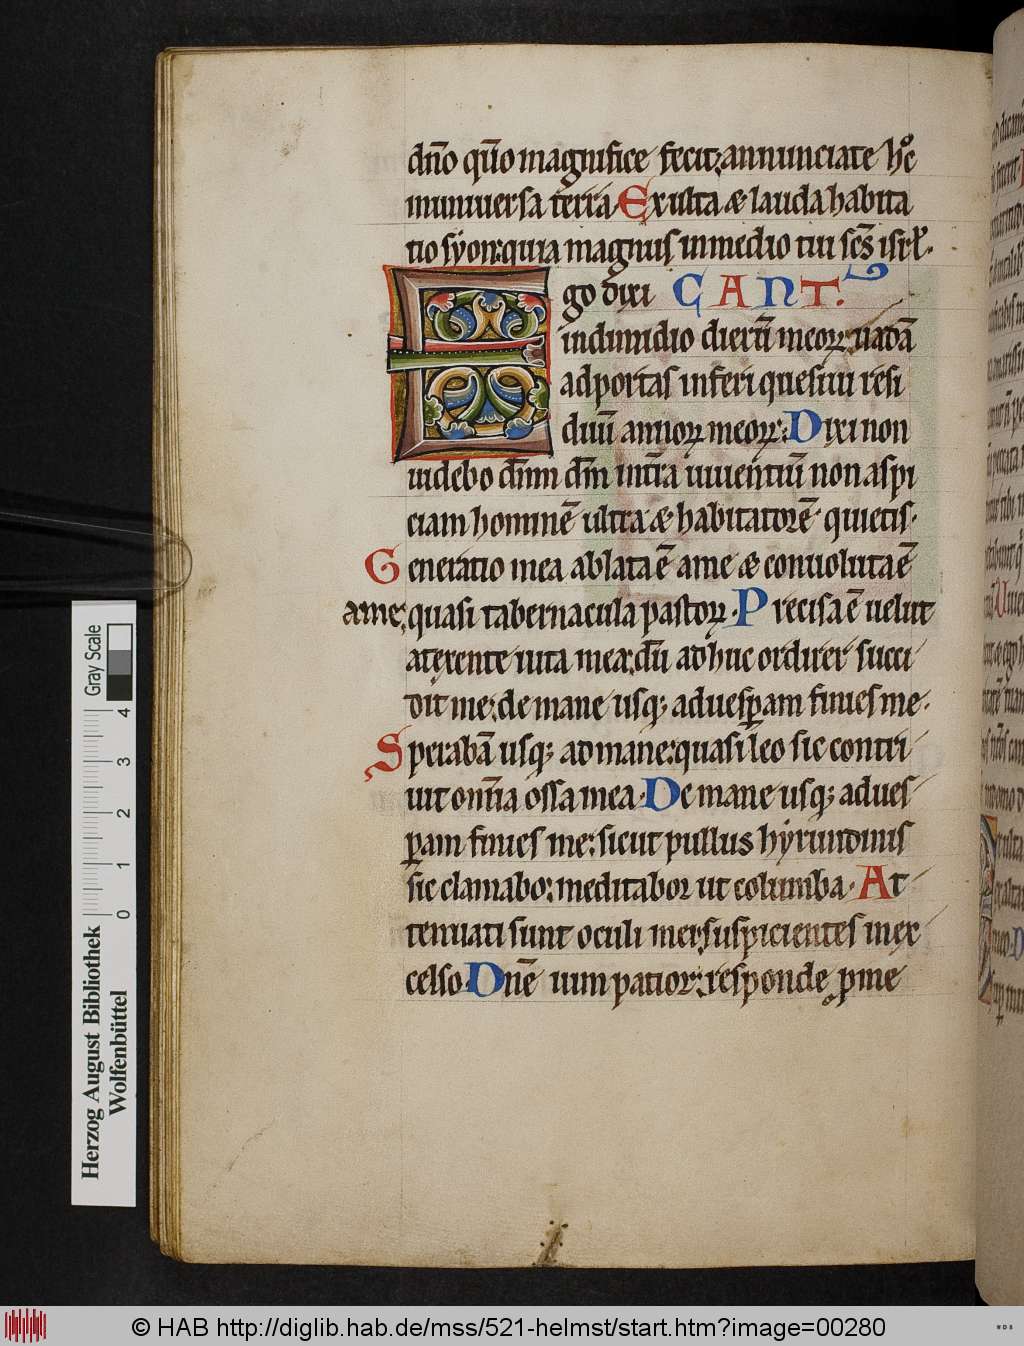 dño quõ magnifice fecit; annunciate hoc
inuniuersa terra Exulta & lauda habita
tio syon: quia magnus inmedio tui sc̄s isrl̄.
Ego dixi CANT.
indimidio dierū meoꝝ: uadā
adportas inferi quesiui resi
duū annoꝝ meoꝝ: Dixi non
uidebo dñm dm̄ int̄ra uiuentiū non aspi
ciam hominē ultra & habitatorē quietis.
Generatio mea ablata ē ame & conuoluta ē
ame; quasi tabernacula pastoꝝ. Precisa ē uelut
atexente uita mea: dū adhuc ordirer succi
dit me; de mane usq; aduesp̱am finies me.
Sperabā usq; ad mane: quasi leo sic contri
uit om̄ia ossa mea. De mane usq; adues
p̱am finies me: sicut pullus hyrundinis
sic clamabo: meditabor ut columba. At
tenuati sunt oculi mei: suspicientes inex
celso. Dñe uim patior: responde p̱ me
Gray Scale
4
3
2
1
0
Herzog August Bibliothek
Wolfenbüttel
© HAB http://diglib.hab.de/mss/521-helmst/start.htm?image=00280